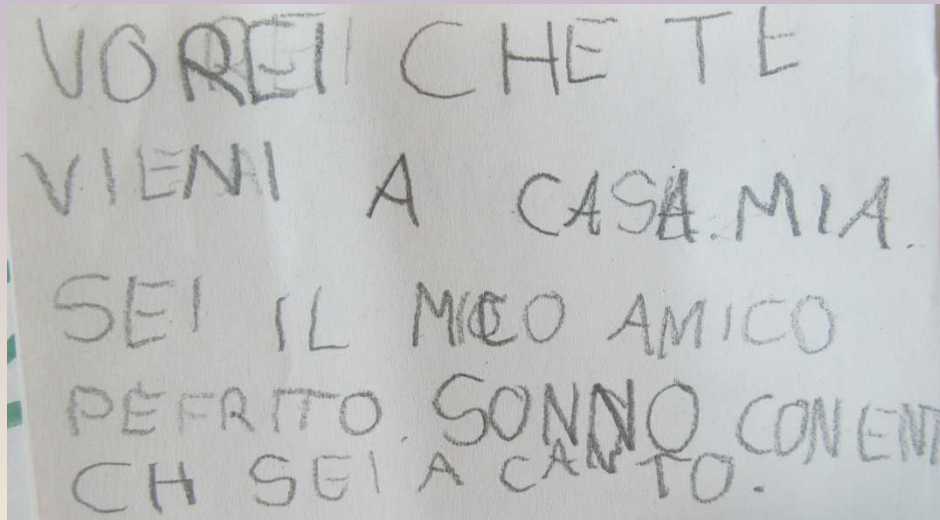 VOREI CHE TE
VIENI A CASA.MIA.
SEI IL MIEO AMICO
PEFRITO. SONNO CONENT
CH SEI A CANTO.